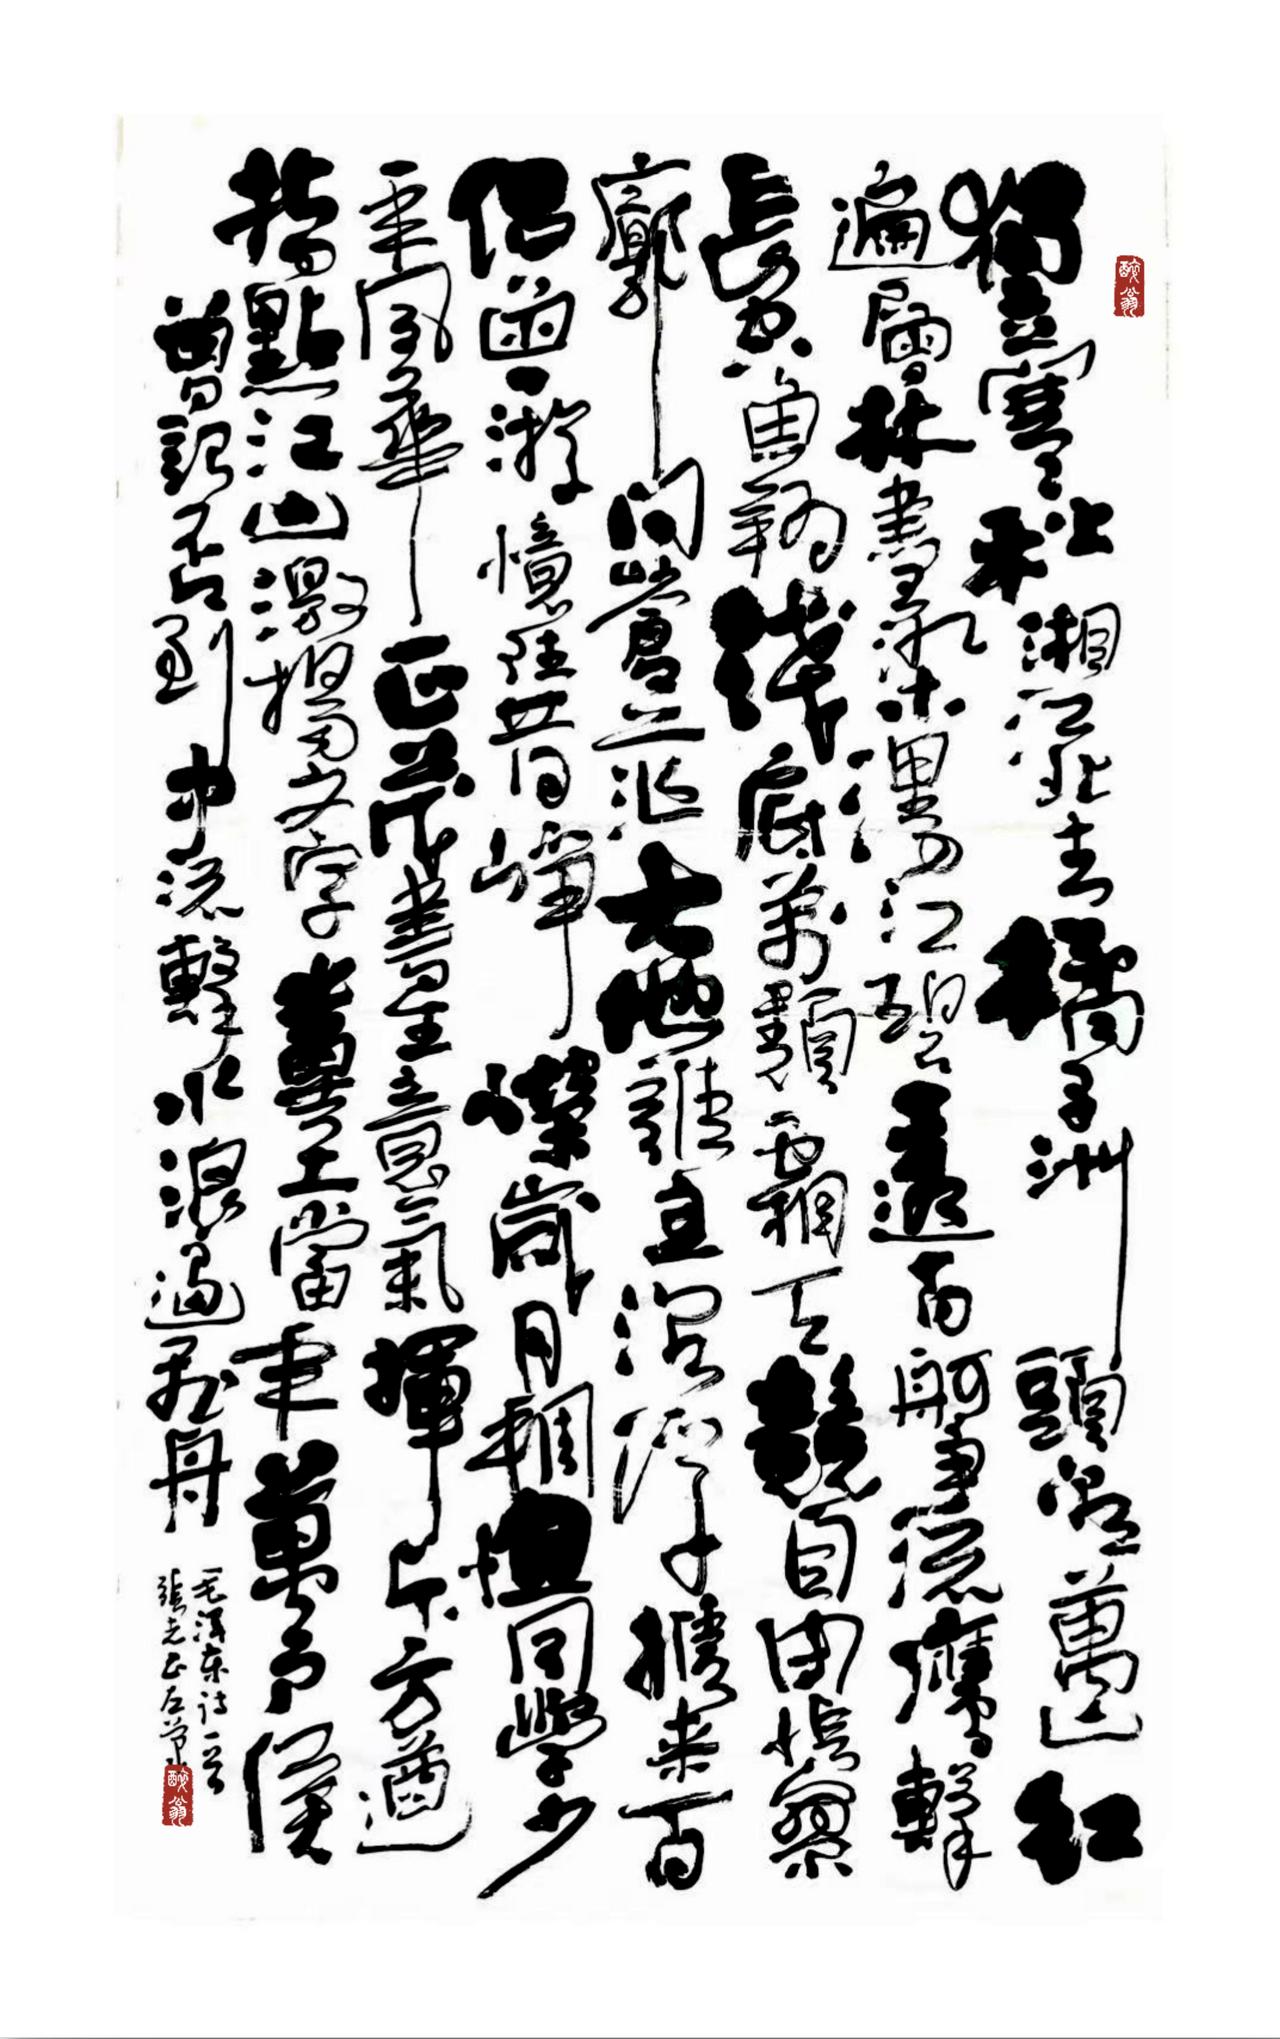 醉翁
獨立寒秋湘江北去橘子洲頭看萬山紅
遍層林盡染漫江碧透百舸爭流鷹擊
長空魚翔淺底萬類霜天競自由悵寥
廓問蒼茫大地誰主沉浮攜來百
侶曾游憶往昔崢嶸歲月稠恰同學少
年風華正茂書生意氣揮斥方遒
指點江山激揚文字糞土當年萬戶侯
曾記否到中流擊水浪遏飛舟
毛澤東詩一首
張志正左筆
醉翁